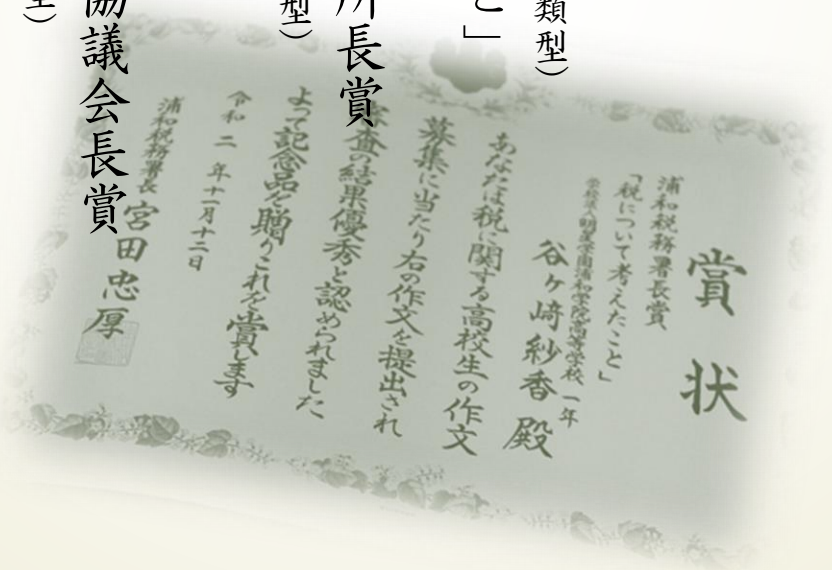 類型）
と」
所長賞
型）
協議会長賞
型）
賞状
浦和税務署長賞
「税について考えたこと」
学校法人明星学園浦和学院高等学校一年
谷ヶ崎紗香殿
あなたは税に関する高校生の作文
募集に当たり右の作文を提出され
審査の結果優秀と認められました
よって記念品を贈りこれを賞します
令和二年十一月十二日
浦和税務署長宮田忠厚